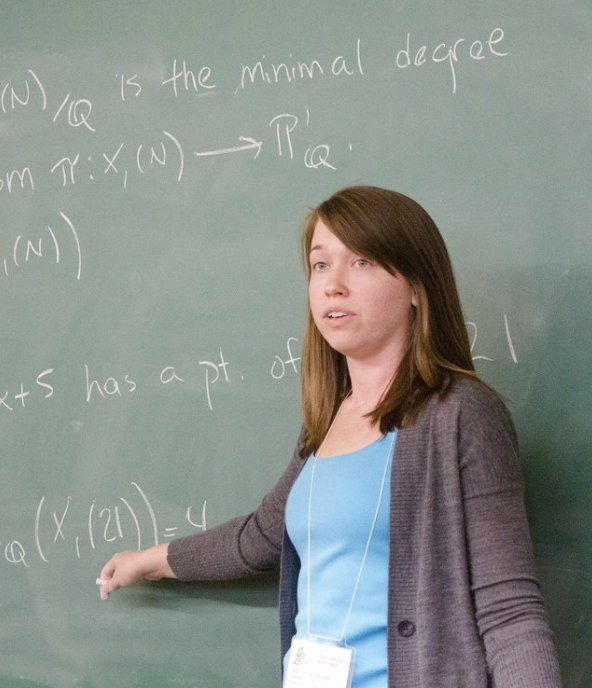 (N)/Q is the minimal degree
om π: X₁(N) → P¹Q.
₁(N))
x+5 has a pt. of 21
Q(X₁(21))=4